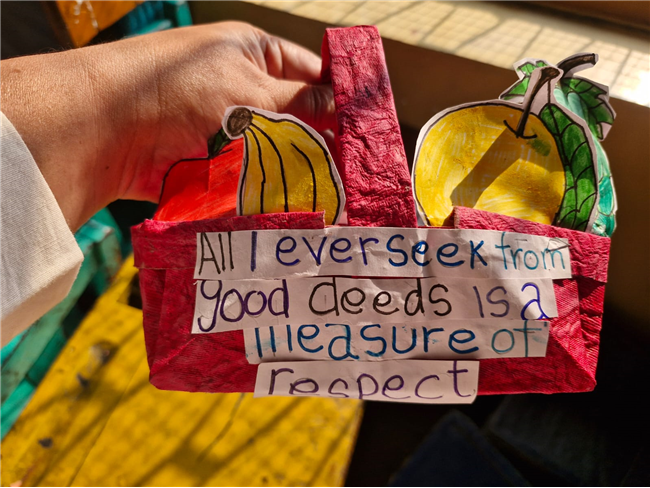 All I ever seek from
good deeds is a
measure of
respect